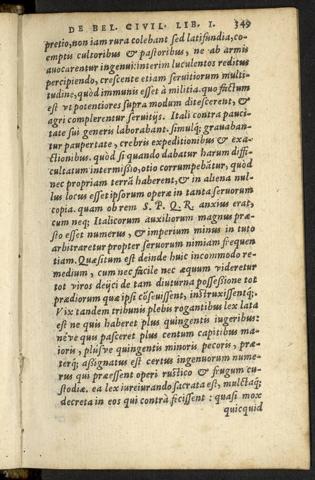 DE BEL. CIVIL. LIB. I. 349
pretio, non iam rura colebant sed latifundia, co-
emptis cultoribus & pastoribus, ne ab armis
auocarentur ingenui: interim luculentos reditus
percipiendo, crescente etiam seruitiorum multi-
tudine, quòd immunis esset à militia. quo factum
est vt potentiores supra modum ditescerent, &
agri complerentur seruitijs. Itali contra pauci-
tate sui generis laborabant. simulq; grauaban-
tur paupertate, crebris expeditionibus & exa-
ctionibus. quòd si quando dabatur harum diffi-
cultatum intermissio, otio corrumpebātur, quòd
nec propriam terrā haberent, & in aliena nul-
lus locus esset ipsorum operæ in tanta seruorum
copia. quam ob rem S. P. Q. R. anxius erat,
cum neq; Italicorum auxiliorum magnus præ-
sto esset numerus, & imperium minus in tuto
arbitraretur propter seruorum nimiam frequen
tiam. Quæsitum est deinde huic incommodo re-
medium, cum nec facile nec æquum videretur
tot viros deijci de tam diuturna possessione tot
prædiorum quæ ipsi cōseuissent, instruxissentq;.
Vix tandem tribunis plebis rogantibus lex lata
est ne quis haberet plus quingentis iugeribus:
né've quis pasceret plus centum capitibus ma-
ioris, plúsve quingentis minoris pecoris, præ-
terq; assignatus est certus ingenuorum nume-
rus qui præessent operi rustico & frugum cu-
stodiæ. ea lex iureiurando sacrata est, mulctaq;
decreta in eos qui contrà fecissent: quasi mox
quicquid